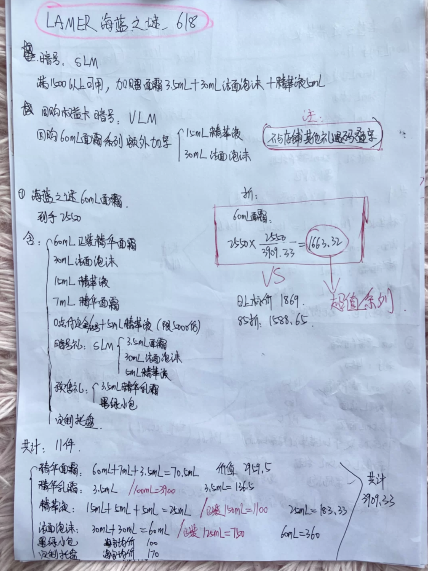 LAMER 海蓝之谜 618
暗号: SLM
满1500以上可用, 加赠面霜3.5mL+30mL洁面泡沫+精华液5mL
回购权益卡 暗号: VLM
注:
回购60mL面霜系列 额外加享
15mL精华液
30mL洁面泡沫
不与店铺其他礼遇码叠享
① 海蓝之谜60mL面霜
到手2550
含:
60mL正装精华面霜
30mL洁面泡沫
15mL精华液
7mL精华面霜
+5mL精华液 (限5000份)
暗号礼: SLM
3.5mL面霜
30mL洁面泡沫
5mL精华液
3.5mL精华乳霜
小包
定制托盘
折:
60mL面霜:
2550×2550/3909.33=1663.32
VS
日上 价 1869.
85折: 1588.65.
超值系列
共计: 11件
精华面霜: 60mL+7mL+3.5mL=70.5mL 价值 2959.5
精华乳霜: 3.5mL /100mL=3900 3.5mL=136.5
精华液: 15mL+5mL+5mL=25mL /正装150mL=1100 25mL=183.33
洁面泡沫: 30mL+30mL=60mL /正装125mL=750 60mL=360
小包 100
定制托盘 170
共计
3909.33